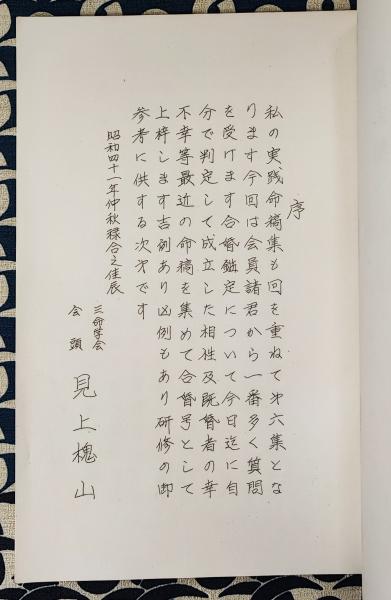 序
私の実践命稿集も回を重ねて㐧六集とな
ります今回は会員諸君から一番多く質問
を受けます合婚鑑定について今日迄に自
分で判定して成立した相性及既婚者の幸
不幸等最近の命稿を集めて合婚号として
上梓します吉例あり凶例もあり研修の御
参考に供する次㐧です
昭和四十一年仲秋禄合之佳辰
三命学会
会頭 見上槐山